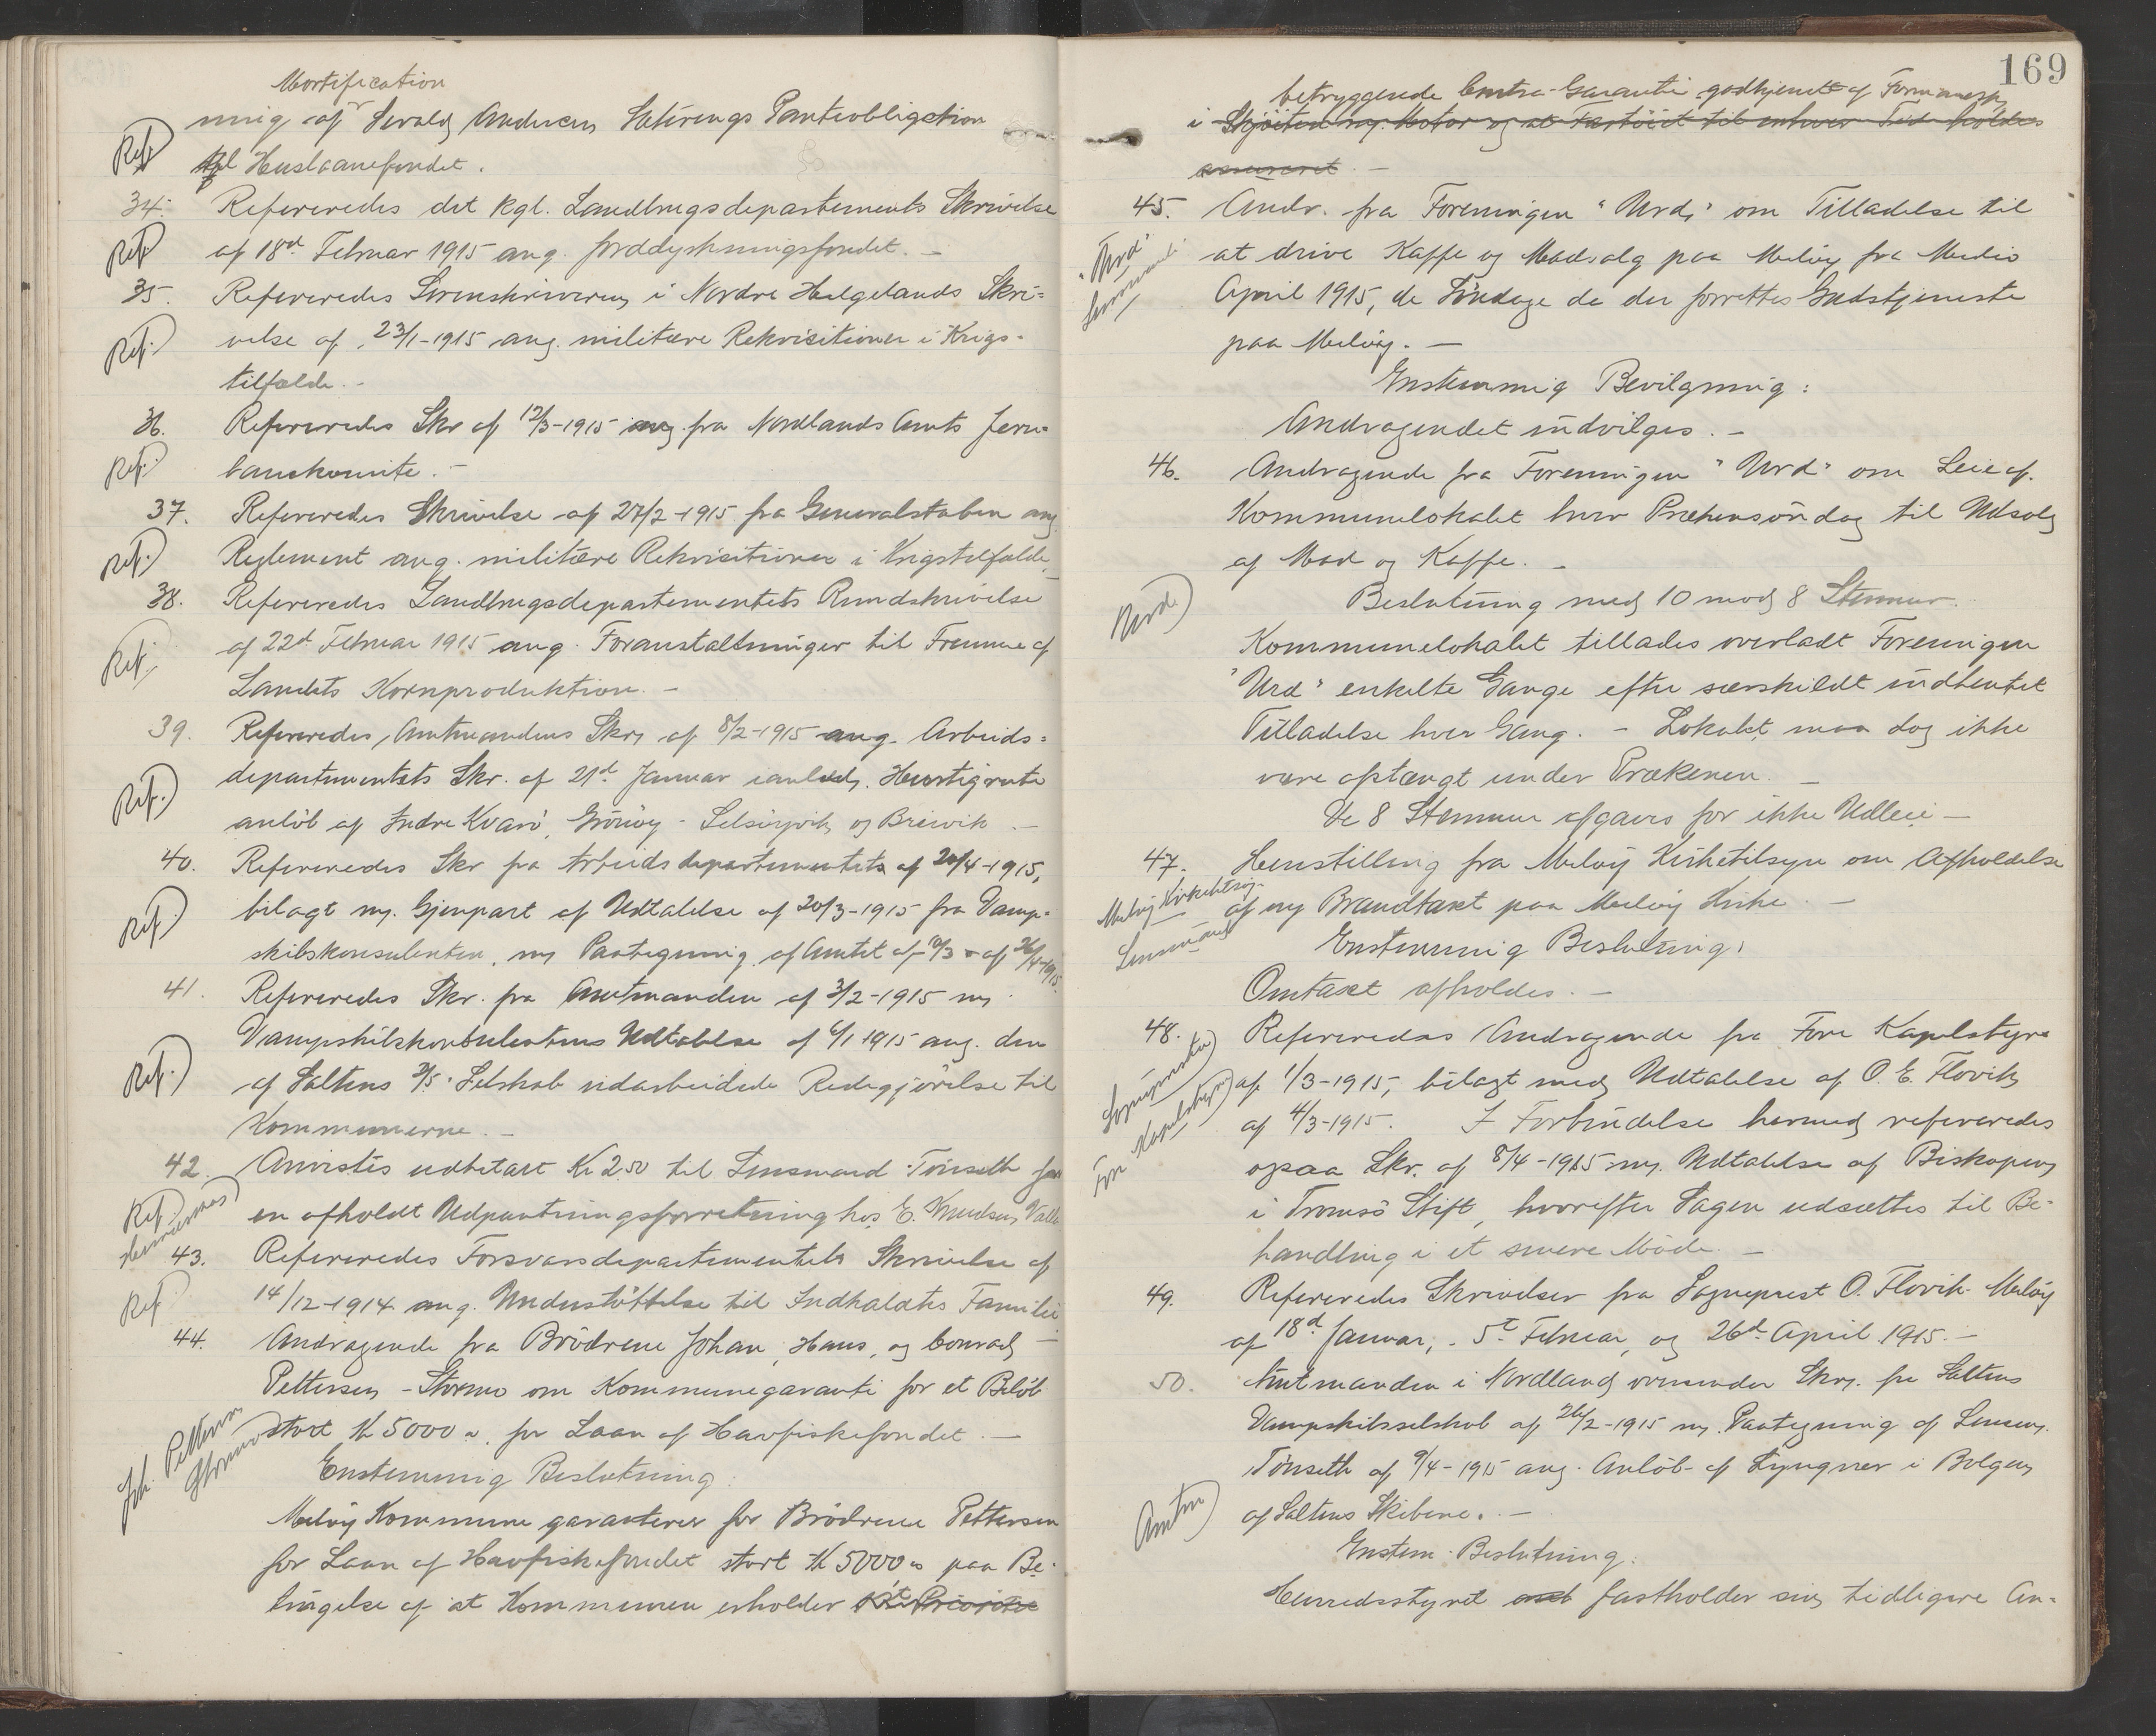 Mortification
ning af Sevald Andersen Sæterengs Panteobligation
Ref.
til Huslaanefondet.
34. Refereredes det kgl. Landbrugsdepartements Skrivelse
Ref.
af 18d Februar 1915 ang. Jorddyrkningsfondet. -
35. Refereredes Sorenskriveren i Nordre Helgelands Skri=
Ref.
velse af 23/1-1915 ang. militære Rekvisitioner i Krigs-
tilfælde. -
36. Refereredes Skr af 12/3-1915 ang. fra Nordlands Amts Jern-
Ref.
banekomite. -
37. Refereredes Skrivelse af 27/2-1915 fra Generalstaben ang
Ref.
Reglement ang. militære Rekvisitioner i Krigstilfælde. -
38. Refereredes Landbrugsdepartementets Rundskrivelse
Ref.
af 22d Februar 1915 ang. Foranstaltninger til Fremme af
Landets Kornproduktion. -
39. Refereredes Amtmandens Skr. af 8/2-1915 ang. Arbeids=
Ref.
departementets Skr. af 21d Januar ianled. Hurtigrute
anløb af Indre Kvarø, Grønøy - Selsøyvik og Breivik. -
40. Refereredes Skr fra Arbeidsdepartementets af 20/4-1915,
Ref.
bilagt m. Gjenpart af Udtalelse af 20/3-1915 fra Damp-
skibskonsulenten, m Paategning af Amtet af /3 - af 26/4-1915.
41. Refereredes Skr. fra Amtmanden af 3/2-1915 m
Ref.
Dampskibskonsulentens Udtalelse af 6/1 1915 ang. den
af Saltens D/S. Selskab udarbeidede Redegjørelse til
Kommunerne. -
42. Anvistes udbetalt Kr 2.50 til Lensmand Tønseth for
Ref.
en afholdt Udpantningsforretning hos E. Knudsen Valla
43. Refereredes Forsvarsdepartementets Skrivelse af
Ref.
14/12-1914 ang. Understøttelse til Indkaldtes Familie
44. Andragende fra Brødrene Johan, Hans, og Conrad -
Pettersen - Stormo om Kommunegaranti for et Beløb
Joh. Petterson
Stormo
stort Kr 5000 ,, for Laan af Havfiskefondet. -
Enstemmig Beslutning:
Meløy Kommune garanterer for Brødrene Pettersen
for Laan af Havfiskefondet stort Kr 5000,00 paa Be-
tingelse af at Kommunen erholder 1ste Prioritet
169
betryggende Contra-Garanti godkjendt af Formandsk.
i Skjøiten m. Motor og at Fartøiet til enhver Tid holdes
assureret. -
45. Andr. fra Foreningen "Urd" om Tilladelse til
"Urd"
at drive Kaffe og Madsalg paa Meløy fra Medio
April 1915, de Søndage da der forrettes Gudstjeneste
paa Meløy. -
Enstemmig Bevilgning:
Andragendet indvilges. -
46. Andragende fra Foreningen "Urd" om Leie af
Kommunelokalet hver Prækensøndag til Udsalg
af Mad og Kaffe. -
Beslutning med 10 mod 8 Stemmer.
Urd
Kommunelokalet tillades overladt Foreningen
"Urd" enkelte Gange efter særskildt indhentet
Tilladelse hver Gang. - Lokalet maa dog ikke
være opstængt under Prækenen. -
De 8 Stemmer afgaves for ikke Udleie -
47. Henstilling fra Meløy Kirketilsyn om Afholdelse
Meløy Kirketilsyn
Lensmand
af ny Brandtaxt paa Meløy Kirke. -
Enstemmig Beslutning:
Omtaxt afholdes. -
48. Refereredes Andragende fra Fore Kapelstyre
Sogneprest
Fore Kapelstyre
af 1/3-1915, bilagt med Udtalelse af O. E. Flovik
af 4/3-1915. I Forbindelse hermed refereredes
ogsaa Skr. af 8/4-1915 m. Udtalelse af Biskopen
i Tromsø Stift, hvorefter Sagen udsættes til Be-
handling i et senere Møde. -
49. Refereredes Skrivelser fra Sogneprest O. Flovik - Meløy
af 18d Januar, - 5te Februar, og 26d April 1915. -
50. Amtmanden i Nordland oversender Skr. fra Saltens
Dampskibsselskab af 26/2-1915 m. Paategning af Lensm.
Tønseth af 9/4-1915 ang. Anløb af Lyngvær i Bolgen
Amtm
af Saltens Skibene. -
Enstem. Beslutning:
Herredsstyret fastholder sin tidligere An-